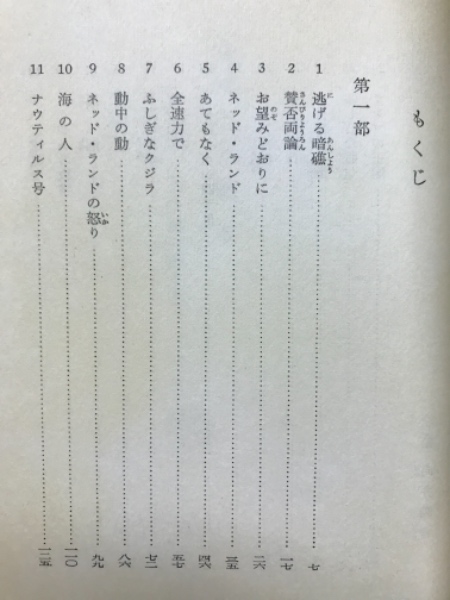 もくじ
第一部
に　あんしょう
1 逃げる暗礁……七
さんぴりょうろん
2 賛否両論……一七
のぞ
3 お望みどおりに……二六
4 ネッド・ランド……三五
5 あてもなく……四六
6 全速力で……五七
7 ふしぎなクジラ……七二
8 動中の動……八六
いか
9 ネッド・ランドの怒り……九九
10 海の人……一一〇
11 ナウティルス号……一二五